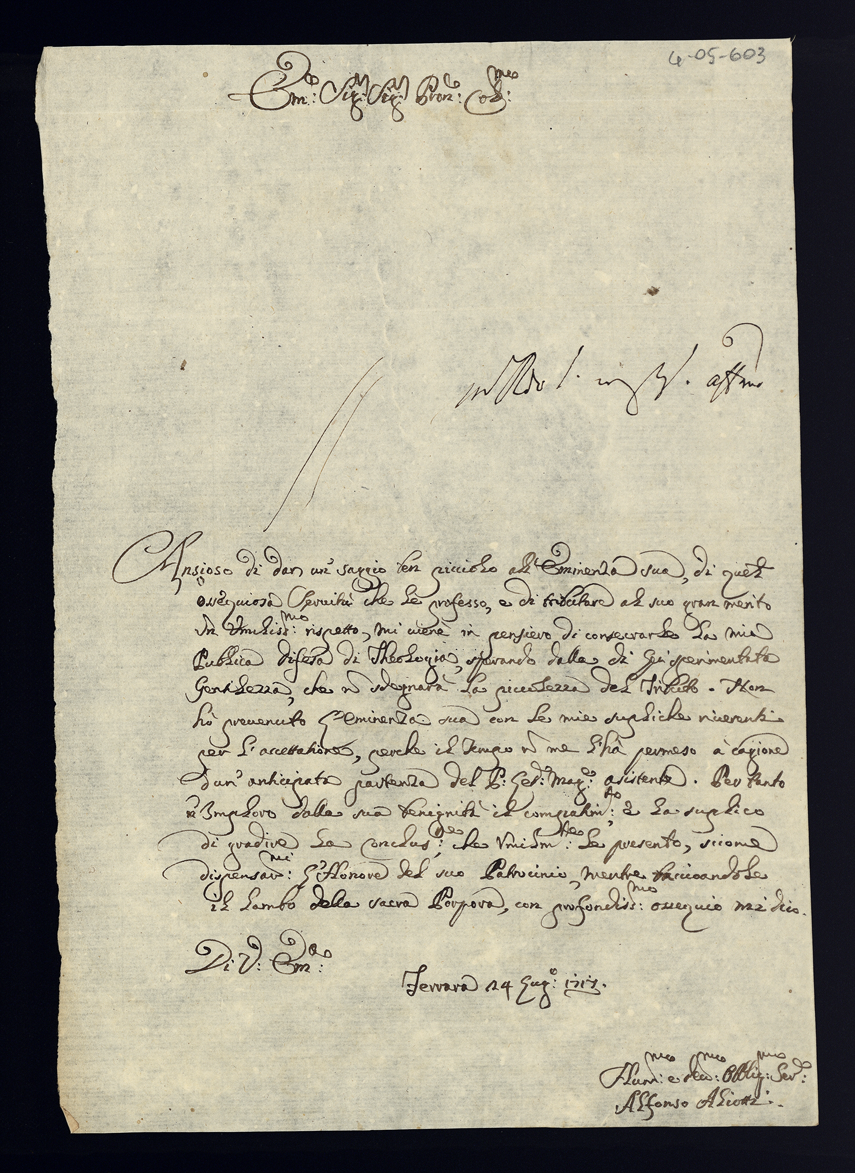 4-05-603
Em:o Sig:r Sig:r Pron: Col:mo
Ansioso di dar un saggio ben picciolo all'Eminenza sua, di quell'
ossequiosa servitù che le professo, e di tributare al suo gran merito
un Umiliss:mo rispetto, mi viene in pensiero di consecrarle la mia
Publica difesa di Theologia, sperando dalla di Già sperimentata
Gentilezza, che ñ sdegnarà la picciolezza del Tributo. Non
hò prevenuto l'Eminenza sua con le mie supliche riverenti
per l'accettatione, perche il Tempo ñ me l'hà permeso a cagione
d'un'anticipata partenza del P: asistente. Per tanto
n'Imploro dalla sua benignità il compatim:to, e la suplico
di gradire la che Umilm:te le presento, sicome
dispensarmi: l'Honore del suo Patrocinio, mentre bacciandole
il Lembo della sacra Porpora, con profondiss:mo ossequio mi dico.
Di V: Em:za
Ferrara 24 1717.
Hum:mo e Obblig:mo Ser:
Alfonso